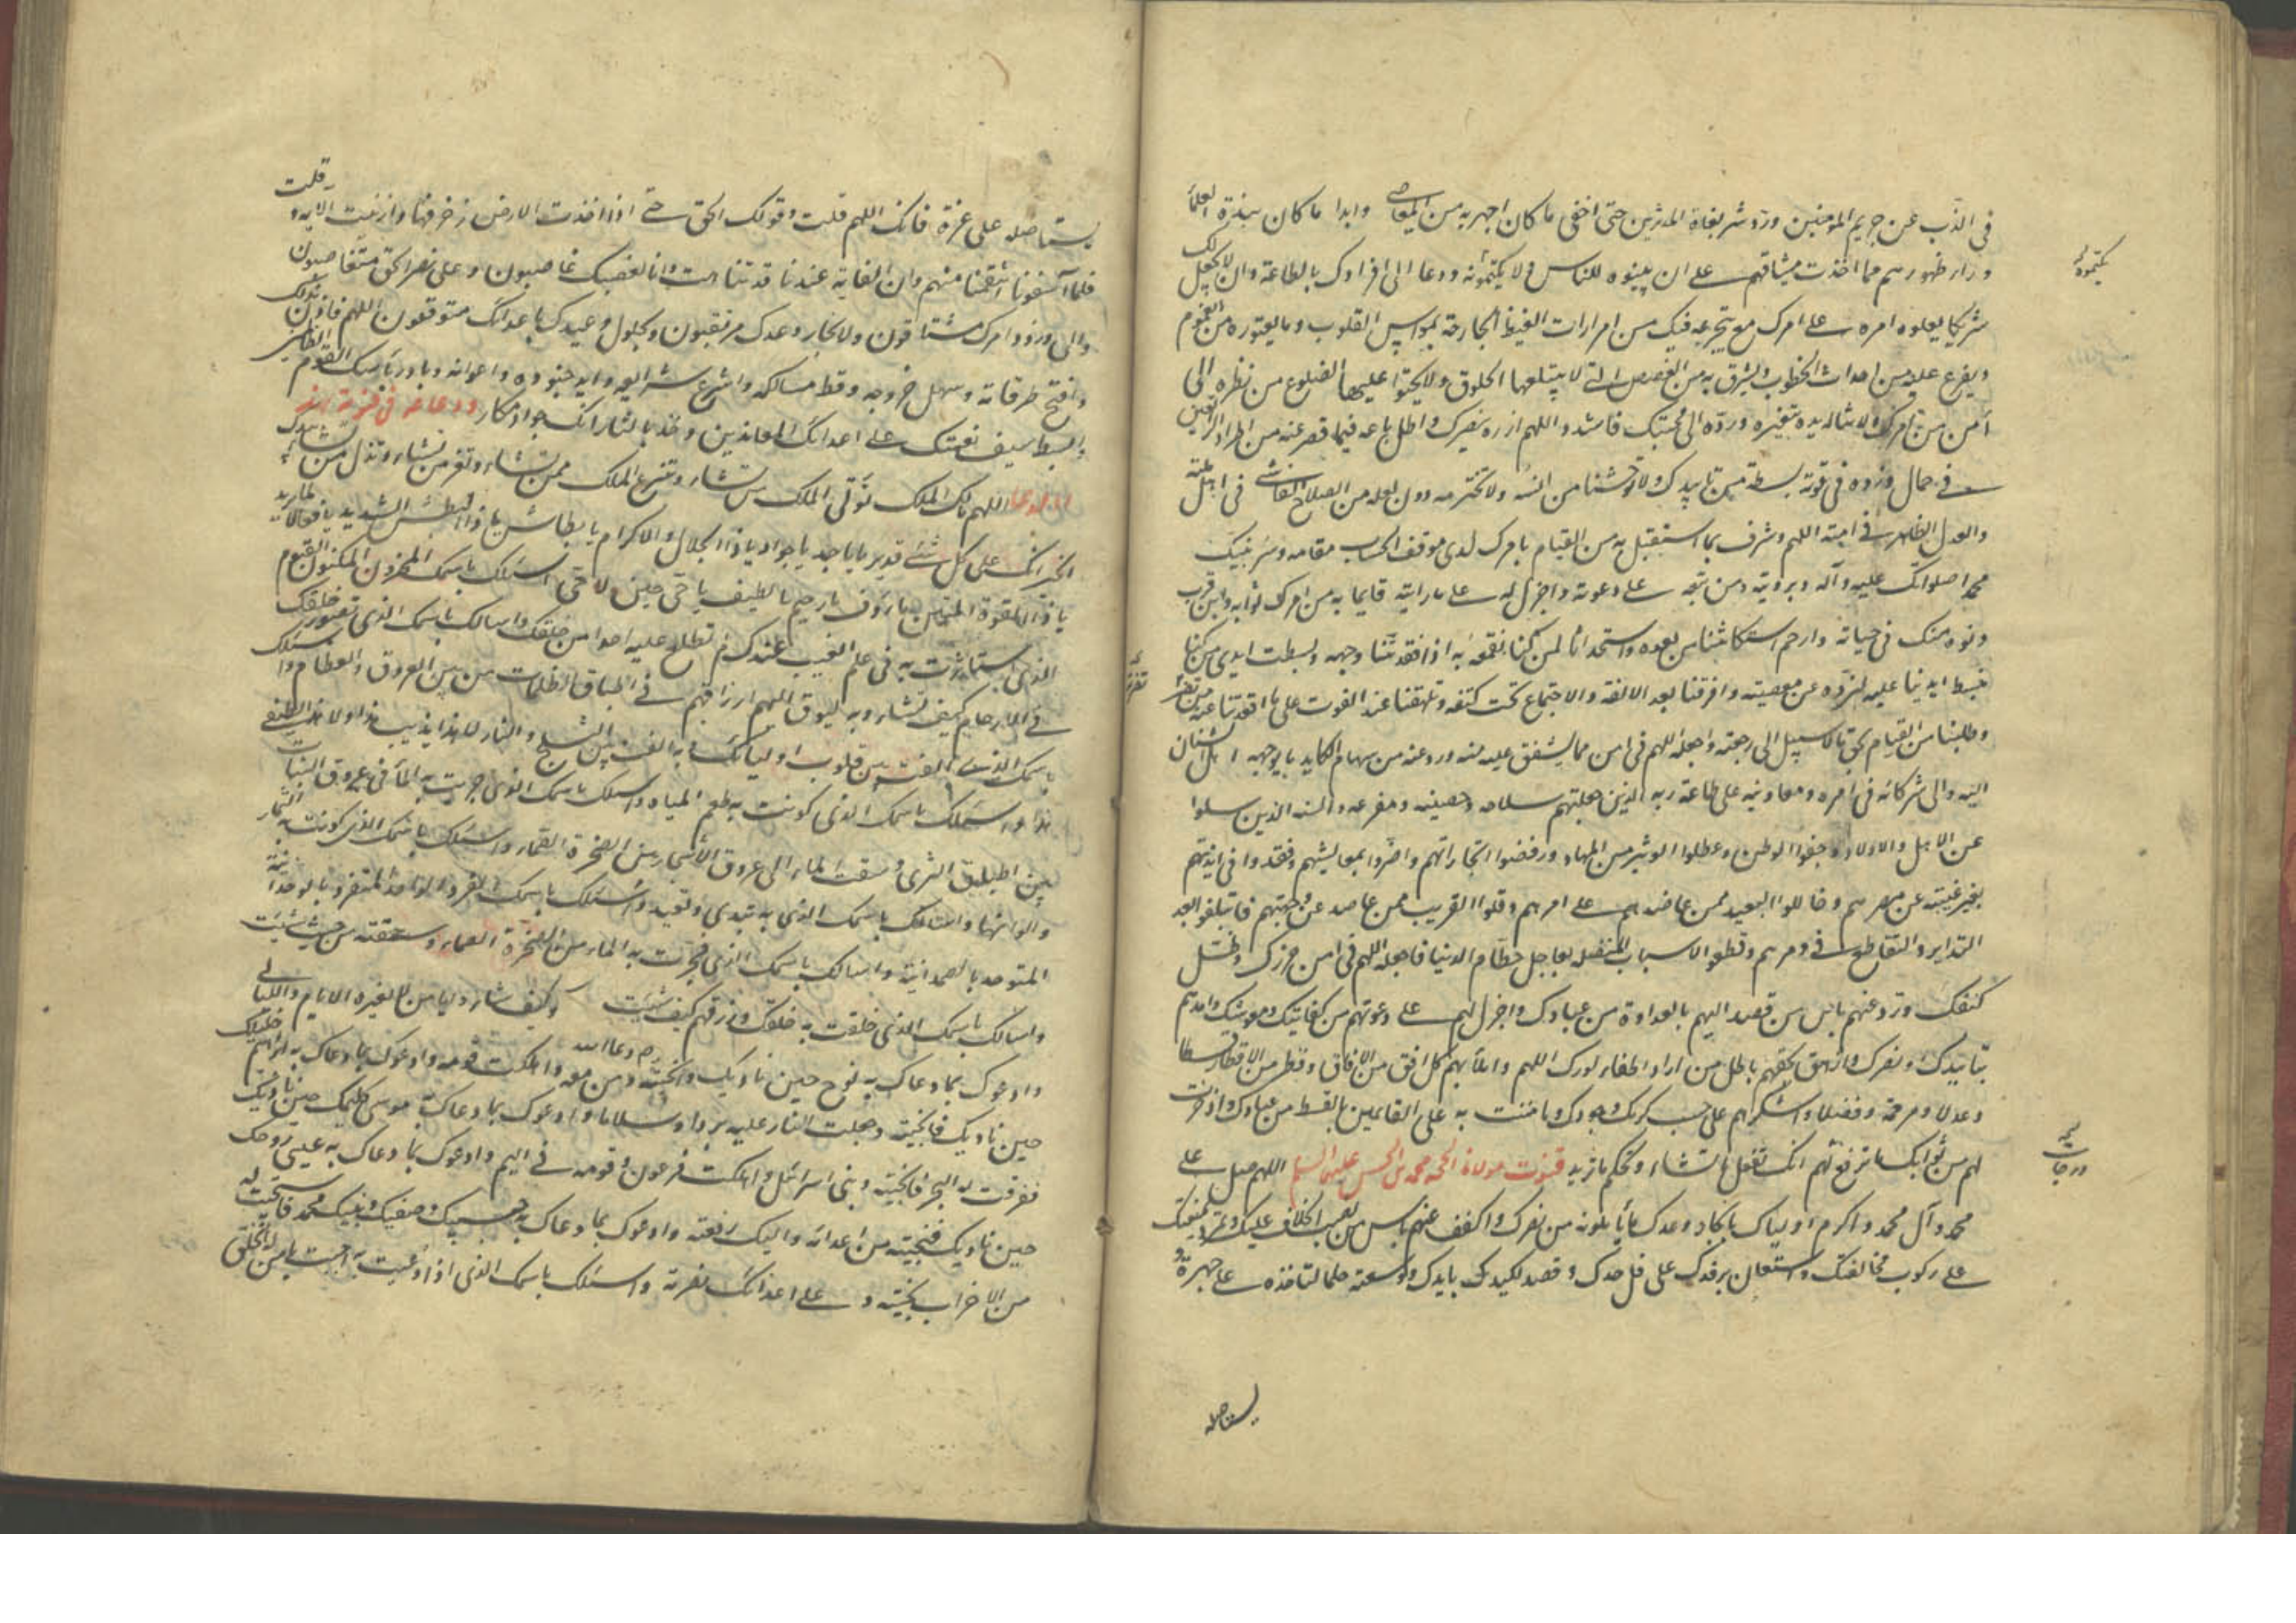 فى الذّب عن حريم المومنين وردّ شر بغاة المدثرين حتى اخفى ما كان اجهر به من المعاصى وابدا ما كان نبذه العلماء
وراء ظهورهم مما اخذت ميثاقهم على ان يبينوه للناس ولا يكتمونه ودعا الى افرادك بالطاعة وان لا يجعل لك
شريكا يعلوه امره على امرك مع يتجرعه فيك من امرارات الغيظ الجارحة بمواس القلوب وما يعتوره من الغموم
ويفرغ عليه من احداث الخطوب ويشرق به من الغصص التى لا يبتلعها الحلوق ولا يحتوا عليها الضلوع من نظره الى
امن من امرك ولا يناله يده بتغيره وردّه الى محبتك فاشدد اللهم ازره بنصرك واطل باعه فيما قصر عنه من اطراد الراتعين
فى حمال وزده فى قوته بسطة من تاييدك ولا توحشنا من انسه ولا تخترمه دون امله من الصلاح الفاشى فى اهل ملته
والعدل الظاهر فى امته اللهم وشرف بما استقبل به من القيام بامرك لدى موقف الحساب مقامه وسر نبيك
محمد اصلواتك عليه وآله وبرويته ومن تبعه على دعوته واجزل له على ما رايته قايما به من امرك ثوابه وابن قرب
دنوه منك فى حياته وارحم استكانتنا من بعده واستخداءنا لمن كنا نقمعه به اذا فقدتنا وجهه وبسطت ايدى من كنا
نبسط ايدينا عليه لنردّه عن معصيته وافرقنا بعد الالفة والاجتماع تحت كنفه وتلهفنا عند الفوت على ما اقعدتنا عنه من نصرته
وطلبنا من القيام بحق ما لا سبيل الى رجعته واجعله اللهم فى امن مما يشفق عليه منه ورد عنه من سهام المكايد ما يوجهه اهل الشنآن
اليه والى شركائه فى امره ومعاونيه على طاعة ربه الذين جعلتهم سلاحه وحصينه ومفزعه وانسه الذين سلوا
عن الاهل والاولاد وجفوا الوطن وعطلوا الوثير من المهاد ورفضوا تجاراتهم واضروا بمعايشهم وفقدوا فى انديتهم
بغير غيبته عن مصرهم وخاللوا البعيد ممن عاضدهم على امرهم وقلوا القريب ممن صد عن وجهتهم فائتلفوا بعد
التدابر والتقاطع فى دهرهم وقطعوا الاسباب المتصله بعاجل حطام الدنيا فاجعله اللهم فى امن حرزك وظل
كنفك ورد عنهم باس من قصد اليهم بالعداوة من عبادك واجزل لهم على دعوتهم من كفايتك ومعونتك وامدهم
بتاييدك ونصرك وازهق بحقهم باطل من اراد اطفاء نورك اللهم واملأ بهم كل افق من الافاق وقطر من الاقطار قسطا
وعدلا ومرحمة وفضلا واشكرهم على حسب كرمك وجودك وما مننت به على القايمين بالقسط من عبادك واذخرت
لهم من ثوابك ما ترفع لهم انك تفعل ما تشاء وتحكم ما تريد قنوت مولانا الحجة محمد بن الحسن عليهما السلم اللهم صل على
محمد وآل محمد واكرم اولياك بانجاز وعدك ما يأملونه من نصرك واكفف عنهم باس من نصب الخلاف عليك وتمرد بمنعك
على ركوب مخالفتك واستعان برفدك على فل حدك وقصد لكيدك بايدك ووسعته حلما لتاخذه على جهرة
يستاصله
يكتموه
تفرق
درجات
يستاصله على غرة فانك اللهم قلت وقولك الحق حتى اذا اخذت الارض زخرفها وازينت الايه وقلت
فلما آسفونا انتقمنا منهم وان الغاية عندنا قد تناهت وانا لغضبك غاضبون وعلى نصر الحق متعاصبون
والى ورود امرك مشتاقون ولانجاز وعدك مرتقبون وبحلول وعيدك باعدائك متوقعون اللهم فاذن بذلك
وافتح طرقاته وسهل خروجه ووطّ مسالكه واشرع شرايعه وايد جنوده واعوانه وبادر باسك القوم الظالمين
وابسط سيف نقمتك على اعدائك المعاندين وخذ بالثار انك جواد مكار ودعا فى قنوته بهذا
الدعا اللهم مالك الملك تؤتى الملك من تشاء وتنزع الملك ممن تشاء وتعز من تشاء وتذل من تشاء بيدك
الخير انك على كل شئ قدير يا ماجد يا جواد يا ذا الجلال والاكرام يا بطاش يا ذا البطش الشديد يا فعالا لما يريد
يا ذا القوة المتين يا رؤف يا رحيم يا لطيف يا حى حين لا حى اسئلك باسمك المخزون المكنون القيوم
الذى استاثرت به فى علم الغيب عندك لم تطلع عليه احدا من خلقك واسالك باسمك الذى تصور خلقك
فى الارحام كيف تشاء وبه تسوق اليهم ارزاقهم فى اطباق الظلمات من بين العروق والعظام واسئلك
باسمك الذى الفت بين قلوب اوليائك وبه الفت بين الثلج والنار لا هذا يذيب هذا ولا هذا يطفى
هذا واسئلك باسمك الذى كونت به طعم المياه واسئلك باسمك الذى اجريت به الماء فى عروق النبات
بين اطباق الثرى وسقت الماء الى عروق الاشجار من الصخرة الصماء واسئلك باسمك الذى كونت به الثمار
والوانها واسالك باسمك الذى به تبدى وتعيد واسئلك باسمك الفرد الواحد المتفرد بالوحدانية
المتوحد بالصمدانية واسالك باسمك الذى فجرت به الماء من الصخرة الصماء وسقته من حيث شئت
واسالك باسمك الذى خلقت به خلقك ورزقهم كيف شئت وكيف شاء وايا من لا يغيره الايام والليالى
وادعوك بما دعاك به نوح حين ناديك وانجيته ومن معه واهلكت قومه وادعوك بما دعاك به ابراهيم خليلك
حين ناديك فانجيته وجعلت النار عليه بردا وسلاما وادعوك بما دعاك به موسى كليمك حين ناديك
ففرقت له البحر فانجيته وبنى اسرائيل واهلكت فرعون وقومه فى اليم وادعوك بما دعاك به عيسى روحك
حين ناديك فنجيته من اعدائه واليك رفعته وادعوك بما دعاك به حبيبك وصفيك ونبيك محمد فاستجبت له
من الاحزاب نجيته وعلى اعدائك نصرته واسئلك باسمك الذى اذا دعيت به اجبت يا من له الخلق